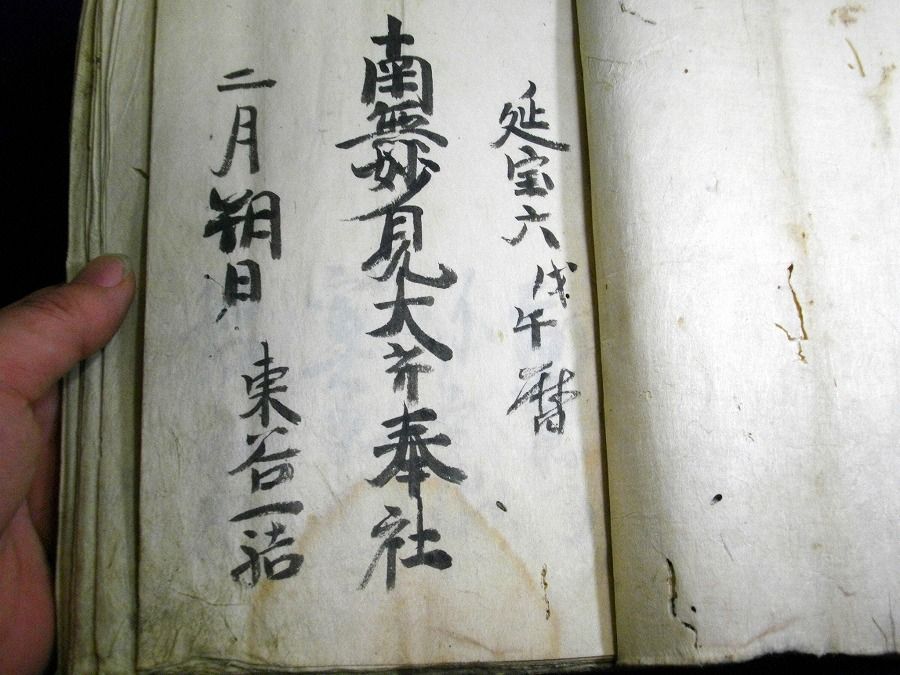 延宝六戊午暦
南無妙見大𦬇奉社
二月朔日 東谷一結